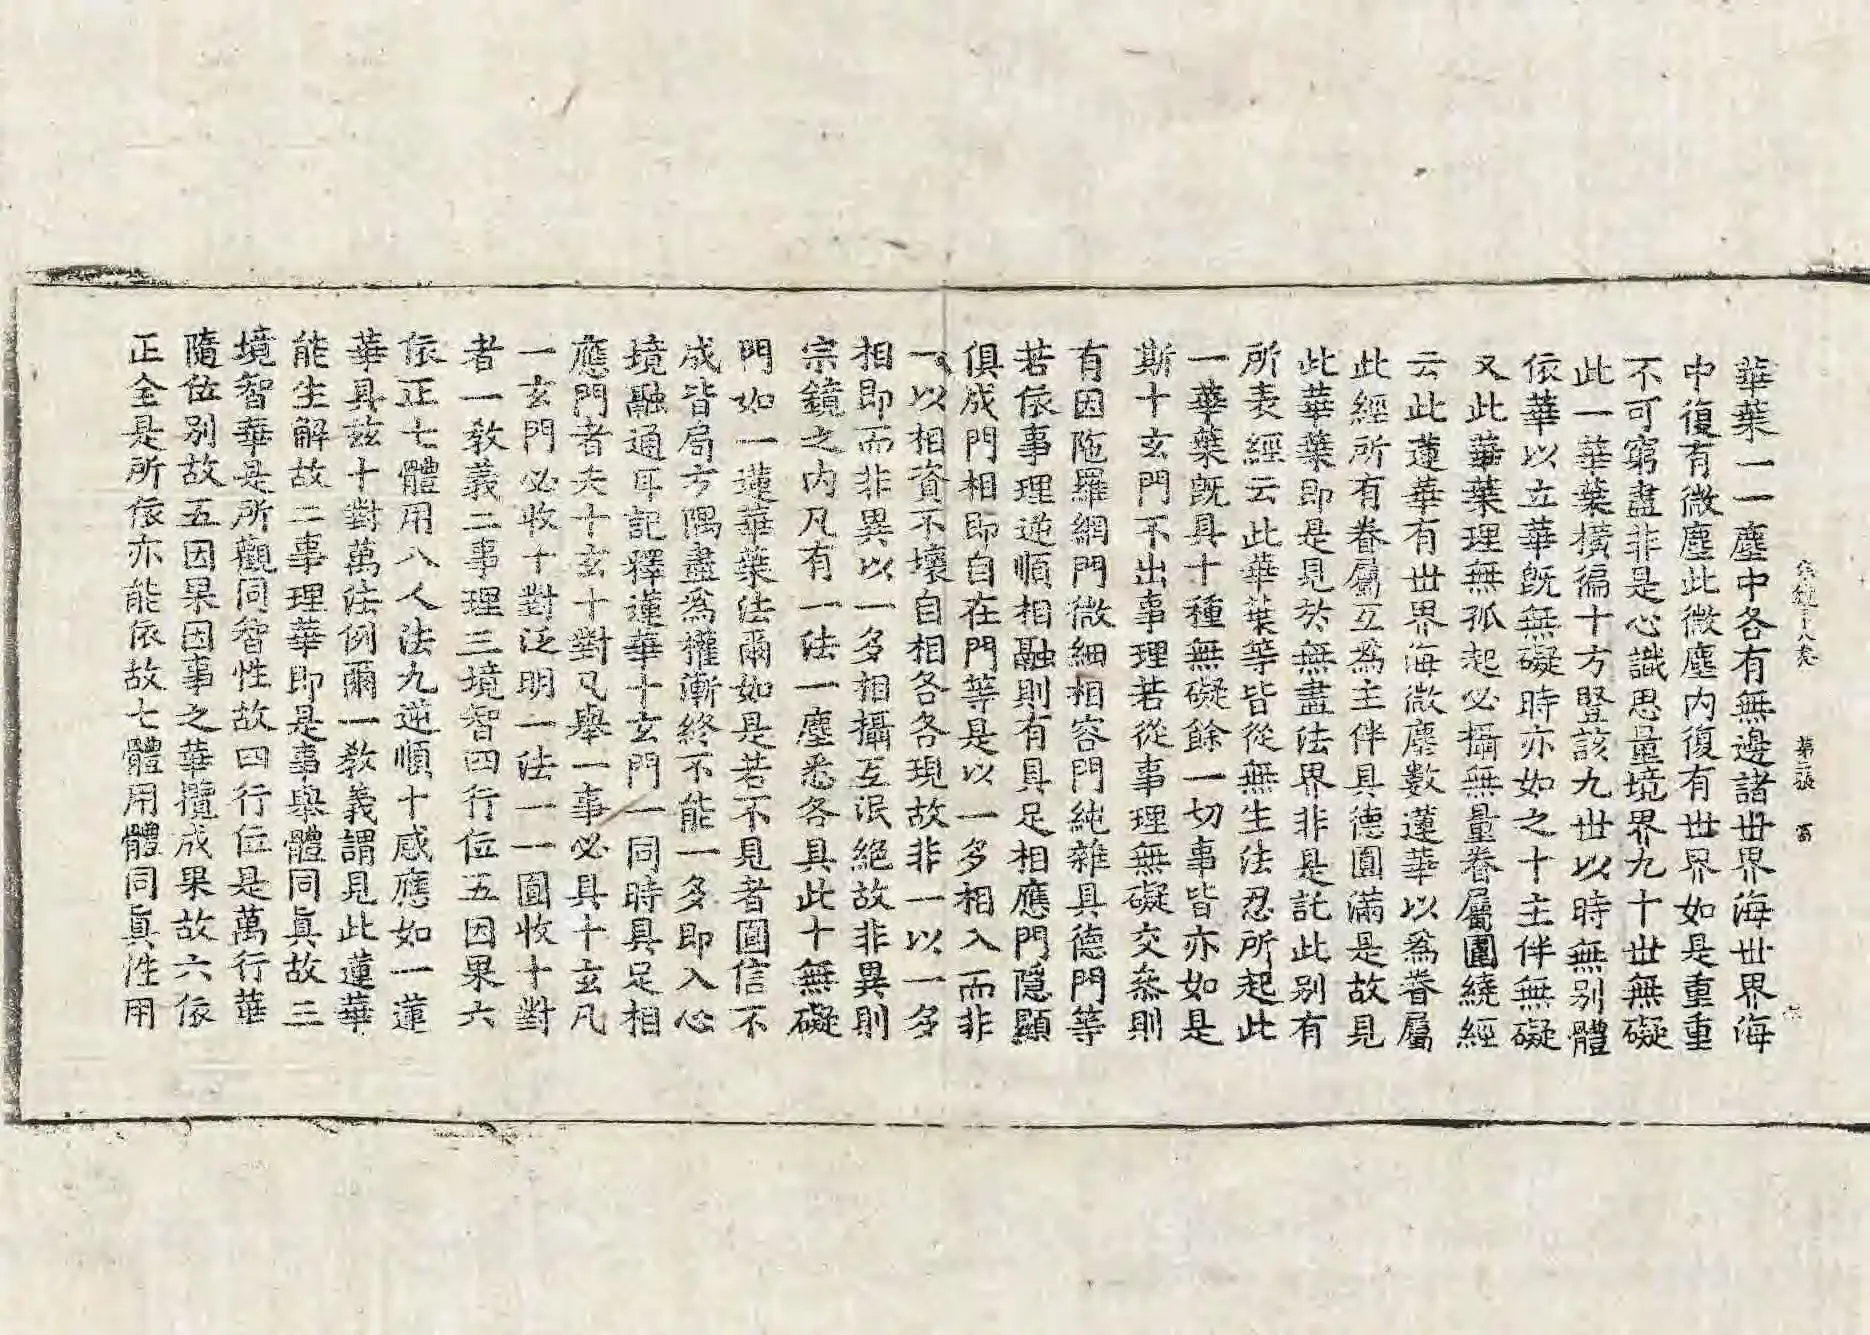 華葉一一塵中各有無邊諸世界海世界海
中復有微塵此微塵内復有世界如是重重
不可窮盡非是心識思量境界九十世無礙
此一華葉橫徧十方豎該九世以時無別體
依華以立華旣無礙時亦如之十主伴無礙
又此華葉理無孤起必攝無量眷屬圍繞經
云此蓮華有世界海微塵數蓮華以爲眷屬
此經所有眷屬互爲主伴具德圓滿是故見
此華葉即是見於無盡法界非是託此別有
所表經云此華葉等皆從無生法忍所起此
一華葉旣具十種無礙餘一切事皆亦如是
斯十玄門不出事理若從事理無礙交叅則
有因陁羅網門微細相容門純雜具德門等
若依事理逆順相融則有具足相應門隱顯
俱成門相即自在門等是以一多相入而非
一以相資不壞自相各各現故非一以一多
相即而非異以一多相攝互泯絕故非異則
宗鏡之内凡有一法一塵悉各具此十無礙
門如一蓮華葉法爾如是若不見者圓信不
成皆局方隅盡爲權漸終不能一多即入心
境融通耳記釋蓮華十玄門一同時具足相
應門者夫十玄十對凡舉一事必具十玄凡
一玄門必收十對泛明一法一一圓收十對
者一敎義二事理三境智四行位五因果六
依正七體用八人法九逆順十感應如一蓮
華具玆十對萬法例爾一敎義謂見此蓮華
能生解故二事理華即是事舉體同眞故三
境智華是所觀同智性故四行位是萬行華
隨位別故五因果因事之華攬成果故六依
正全是所依亦能依故七體用體同眞性用
宗鏡二十八卷 第二張 富